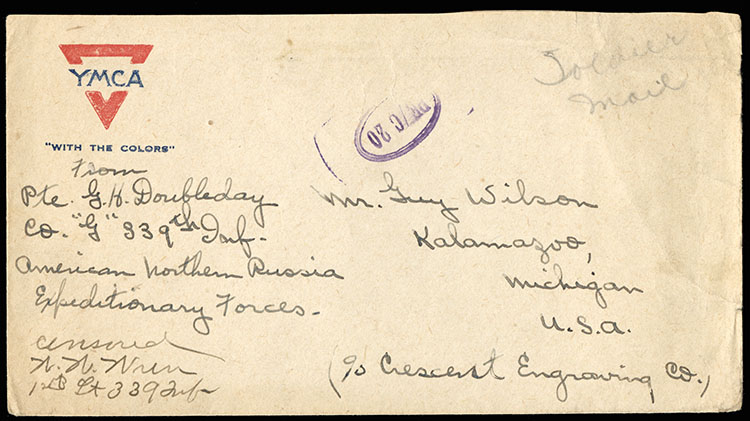 YMCA
"WITH THE COLORS"
Soldier
Mail
From
Pte. G. H. Doubleday
Co. "G" 339th Inf-
American Northern Russia
Expeditionary Forces-
censored
W. W. Wren
1st Lt 339 Inf
PR/C 20
Mr. Guy Wilson
Kalamazoo,
Michigan
U.S.A.
(c/o Crescent Engraving Co.)